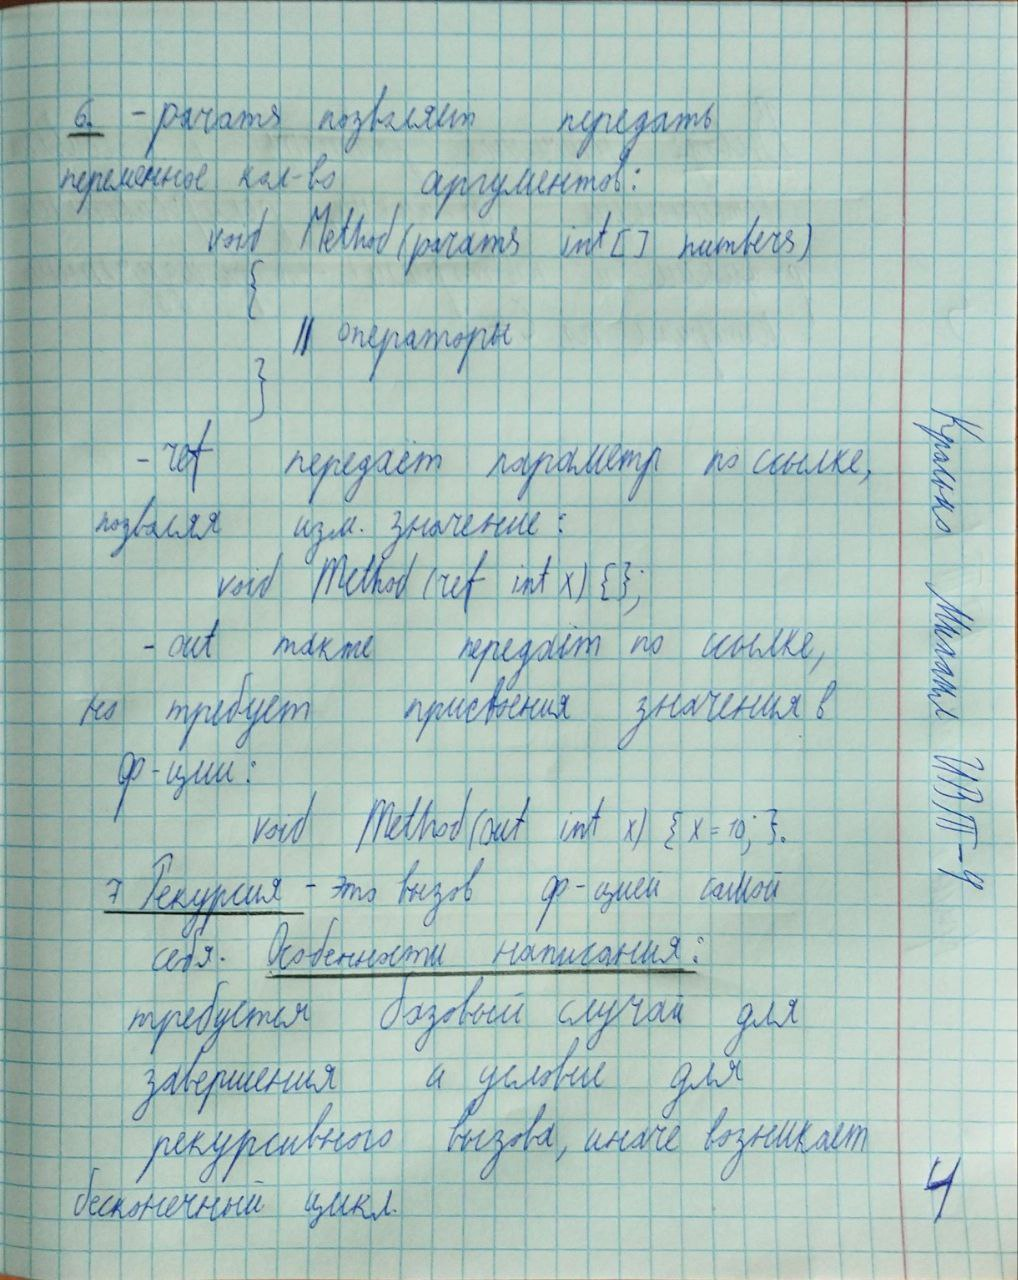 6. - params позволяет передать
переменное кол-во аргументов:
void Method(params int[] numbers)
{
// операторы
}
- ref передаёт параметр по ссылке,
позволяя изм. значение:
void Method (ref int x) {};
- out также передаёт по ссылке,
но требует присвоения значения в
ф-ции:
void Method(out int x) { x = 10; }.
7 Рекурсия - это вызов ф-цией самой
себя. Особенности написания:
требуется базовый случай для
завершения и условие для
рекурсивного вызова, иначе возникает
бесконечный цикл.
Михаил ИВТ-4
4